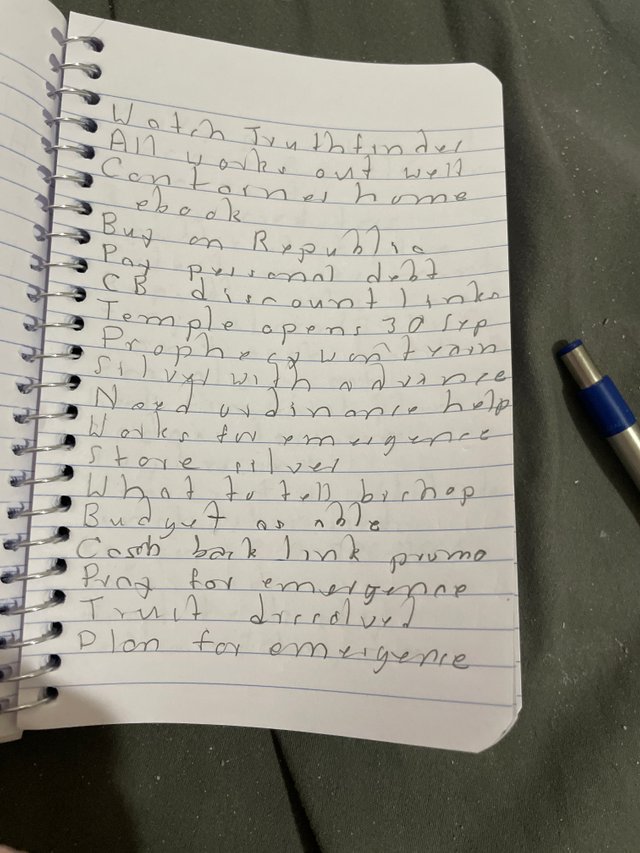 Watch Truthfinder
All works out well
Container home
ebook
Buy on Republic
Pay personal debt
CB discount links
Temple opens 30 Sep
Prophecy won't rain
Silver with advance
Need ordinance help
Works for emergence
Store silver
What to tell bishop
Budget as able
Cash back link promo
Pray for emergence
Trust dissolved
Plan for emergence